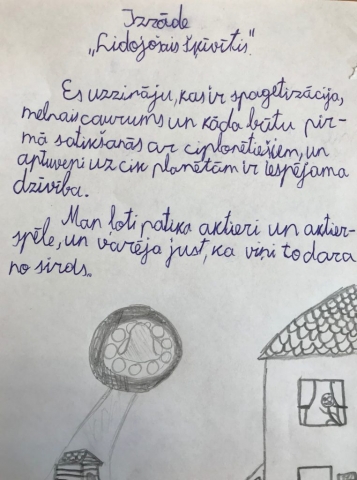 Izrāde
„Lidojošais šķīvītis".
Es uzzināju, kas ir spagetizācija,
melnais caurums un kāda būtu pir-
mā satikšanās ar citplanētiešiem, un
aptuveni uz cik planētām ir iespējama
dzīvība.
Man ļoti patika aktieri un aktier-
spēle, un varēja just, ka viņi to dara
no sirds.